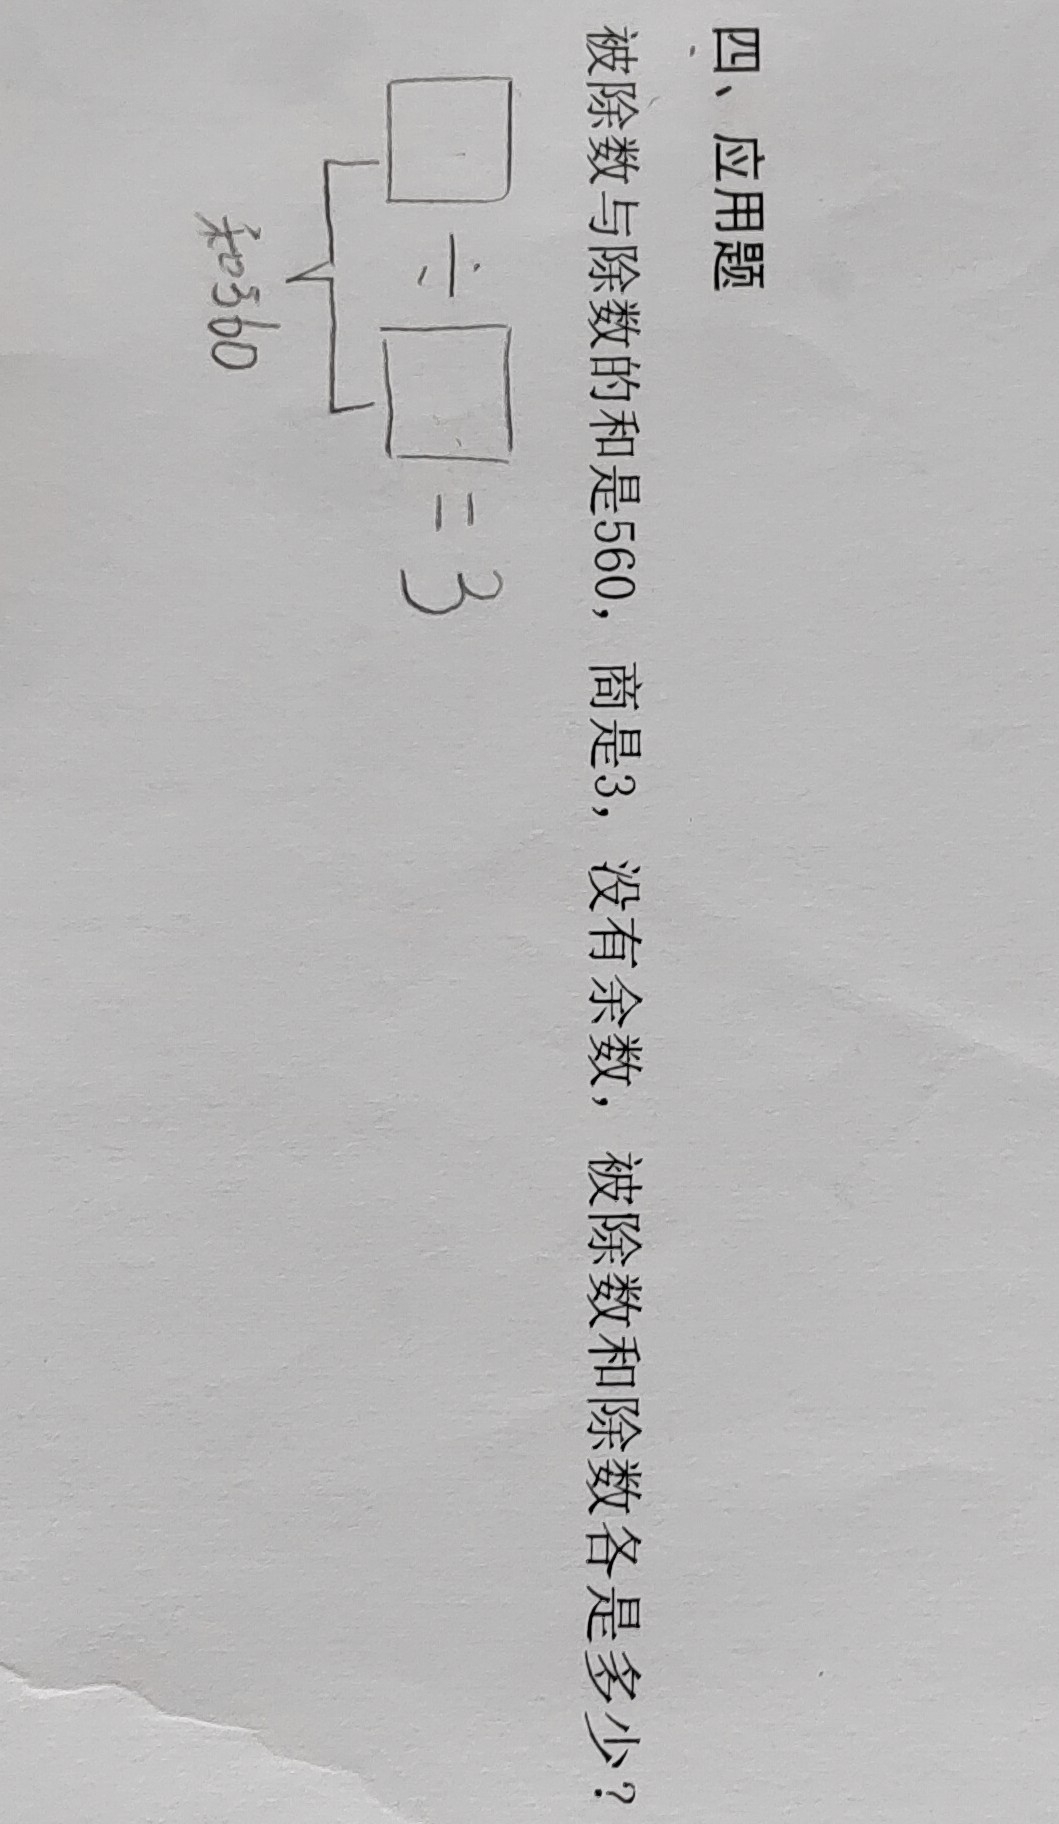 四、应用题
被除数与除数的和是560，商是3，没有余数，被除数和除数各是多少？
□÷□=3
和560